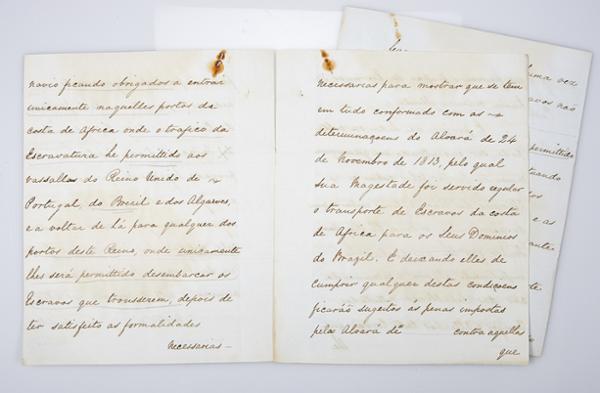 navio ficando obrigados a entrar
unicamente naquelles portos da
costa de Africa onde o trafico da
Escravatura he permittido aos
vassallos do Reino Unido de
Portugal, do Brazil e dos Algarves,
e a voltar de lá para qualquer dos
portos deste Reino, onde unicamente
lhes será permittido desembarcar os
Escravos que trouxserem, depois de
ter satisfeito as formalidades
necessarias —
necessarias para mostrar que se tem
em tudo conformado com as
determinaçoens do Alvará de 24
de Novembro de 1813, pelo qual
sua Magestade foi servido regular
o transporte de Escravos da costa
de Africa para os Seus Dominios
do Brazil. E deixando elles de
cumprir qualquer destas condiçoens
ficarão sugeitos ás penas impostas
pelo Alvará de contra aquelles
que
vez
não
permittido
e as